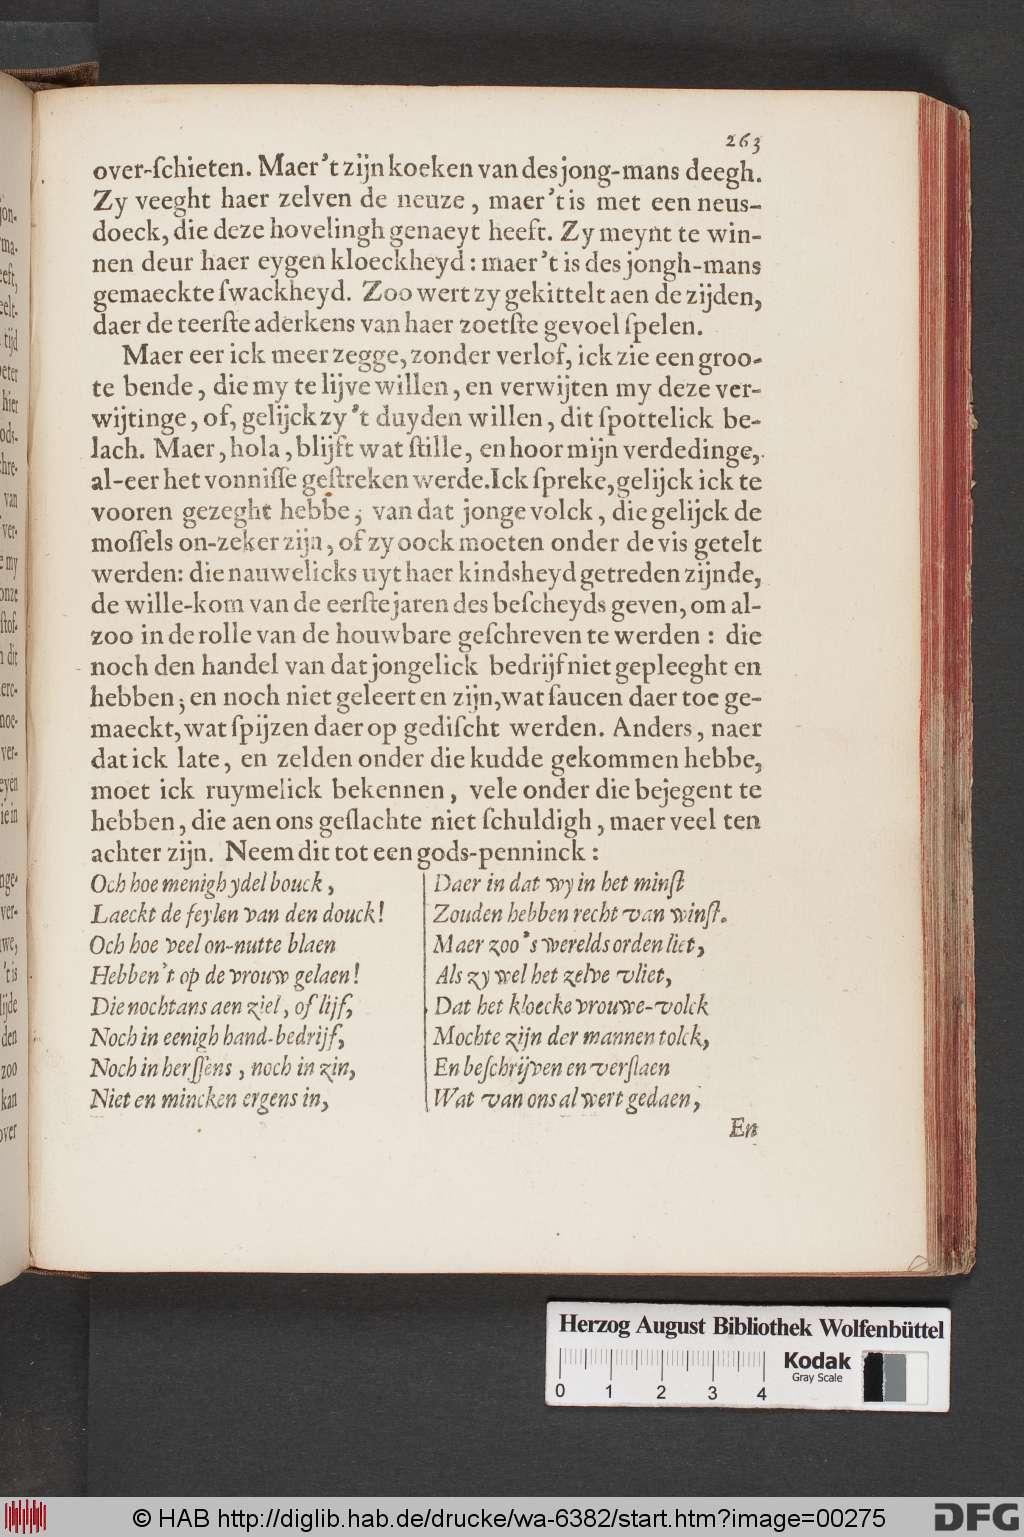 263
over-ſchieten. Maer 't zijn koeken van des jong-mans deegh.
Zy veeght haer zelven de neuze, maer 't is met een neus-
doeck, die deze hovelingh genaeyt heeft. Zy meynt te win-
nen deur haer eygen kloeckheyd: maer 't is des jongh-mans
gemaeckte ſwackheyd. Zoo wert zy gekittelt aen de zijden,
daer de teerſte aderkens van haer zoetſte gevoel ſpelen.
Maer eer ick meer zegge, zonder verlof, ick zie een groo-
te bende, die my te lijve willen, en verwijten my deze ver-
wijtinge, of, gelijck zy 't duyden willen, dit ſpottelick be-
lach. Maer, hola, blijft wat ſtille, en hoor mijn verdedinge,
al-eer het vonniſſe geſtreken werde. Ick ſpreke, gelijck ick te
vooren gezeght hebbe, van dat jonge volck, die gelijck de
moſſels on-zeker zijn, of zy oock moeten onder de vis getelt
werden: die nauwelicks uyt haer kindsheyd getreden zijnde,
de wille-kom van de eerſte jaren des beſcheyds geven, om al-
zoo in de rolle van de houwbare geſchreven te werden: die
noch den handel van dat jongelick bedrijf niet gepleeght en
hebben; en noch niet geleert en zijn, wat ſaucen daer toe ge-
maeckt, wat ſpijzen daer op gediſcht werden. Anders, naer
dat ick late, en zelden onder die kudde gekommen hebbe,
moet ick ruymelick bekennen, vele onder die bejegent te
hebben, die aen ons geſlachte niet ſchuldigh, maer veel ten
achter zijn. Neem dit tot een gods-penninck:
Och hoe menigh ydel bouck,
Laeckt de feylen van den douck!
Och hoe veel on-nutte blaen
Hebben't op de vrouw gelaen!
Die nochtans aen ziel, of lijf,
Noch in eenigh hand-bedrijf,
Noch in herſſens, noch in zin,
Niet en mincken ergens in,
Daer in dat wy in het minſt
Zouden hebben recht van winſt.
Maer zoo 's werelds orden liet,
Als zy wel het zelve vliet,
Dat het kloecke vrouwe-volck
Mochte zijn der mannen tolck,
En beſchrijven en verſlaen
Wat van ons al wert gedaen,
En
Herzog August Bibliothek Wolfenbüttel
Kodak
Gray Scale
0 1 2 3 4
© HAB http://diglib.hab.de/drucke/wa-6382/start.htm?image=00275
DFG